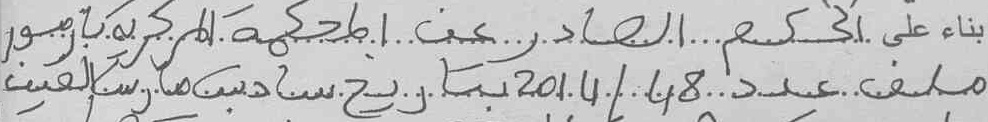 بناء على الحكم الصادر عن المحكمة المركزية بازمور
ملف عدد 48/2014 بتاريخ سادس مارس ألفين